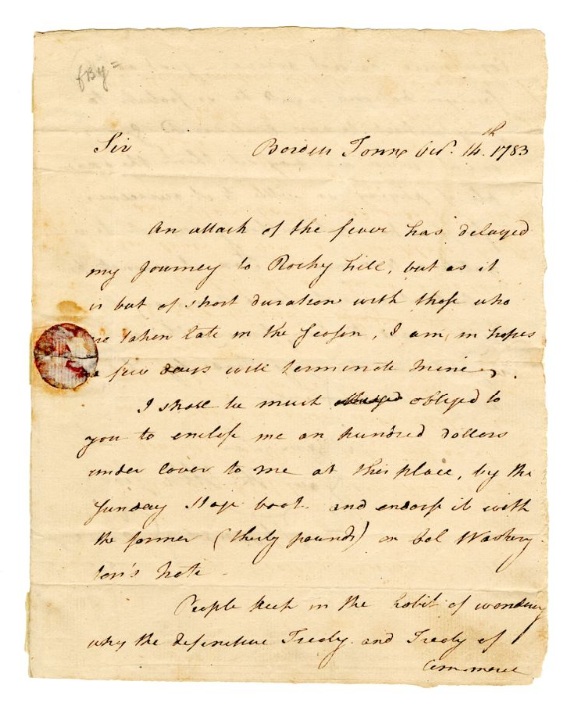 Sir Borden Town Oct. 14th. 1783
An attack of the fever has delayed
my Journey to Rocky hill, but as it
is but of short duration with those who
are taken late in the Season, I am in hopes
a few days will terminate mine.
I shall be much obliged to
you to enclose me an hundred dollars
under cover to me at this place, by the
Sunday Stage boat and endorse it with
the former (thirty pounds) on Col Washing
ton's Note.
People keep in the habit of wondering
why the definitive Treaty and Treaty of
Commerce